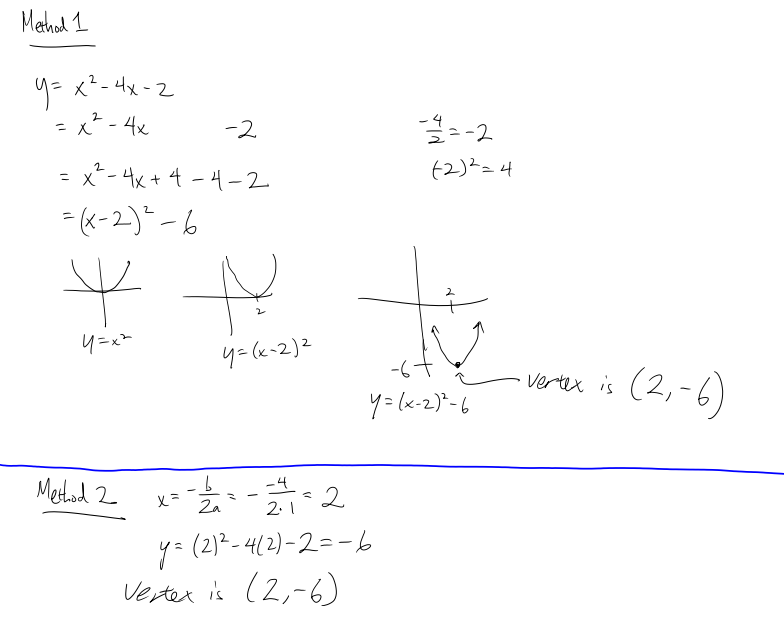 Method 1
y = x² - 4x - 2
= x² - 4x -2
-4/2 = -2
(-2)² = 4
= x² - 4x + 4 - 4 - 2
= (x-2)² - 6
2
2
y = x²
y = (x-2)²
-6
vertex is (2, -6)
y = (x-2)² - 6
Method 2 x = -b/2a = - -4/2·1 = 2
y = (2)² - 4(2) - 2 = -6
Vertex is (2, -6)